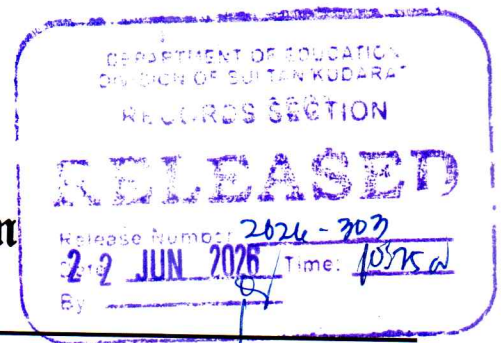 DEPARTMENT OF EDUCATION
DIVISION OF SULTAN KUDARAT
RECORDS SECTION
RELEASED
n
Release Number: 2026-303
Date 22 JUN 2026 Time:
By